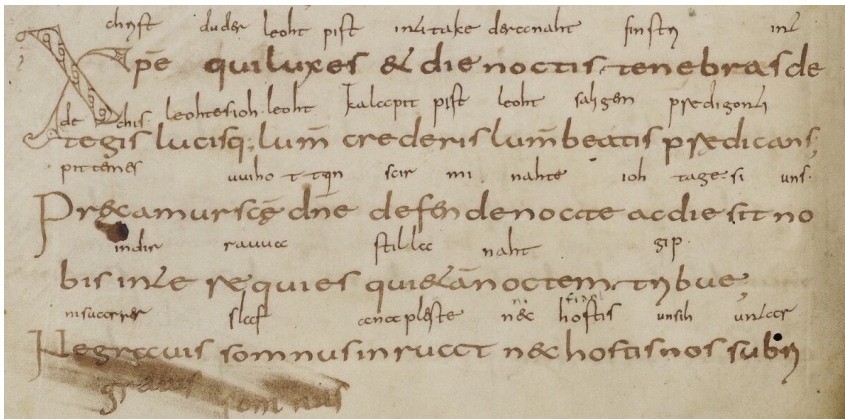 christ du der leoht pist inti take dera naht finstri int
Xpē qui lux es & die noctis tenebras de
de chis leohtes ioh leoht kalaupit pist leoht saligem predigonti
tegis lucisq; lum̄ crederis lum̄ beatis predicans;
pittemes uuiho t tin scir mi nahte ioh tage si uns
Precamur scē dn̄e defende nocte ac die sit no
in dir rauua stilla naht gip
bis in te requies quietā noctem tribue;
ni suuarrer slaf ana pleste noc hostis unsih untar
Ne grauis somnus inruat nec hostis nos subri
grauis somnus